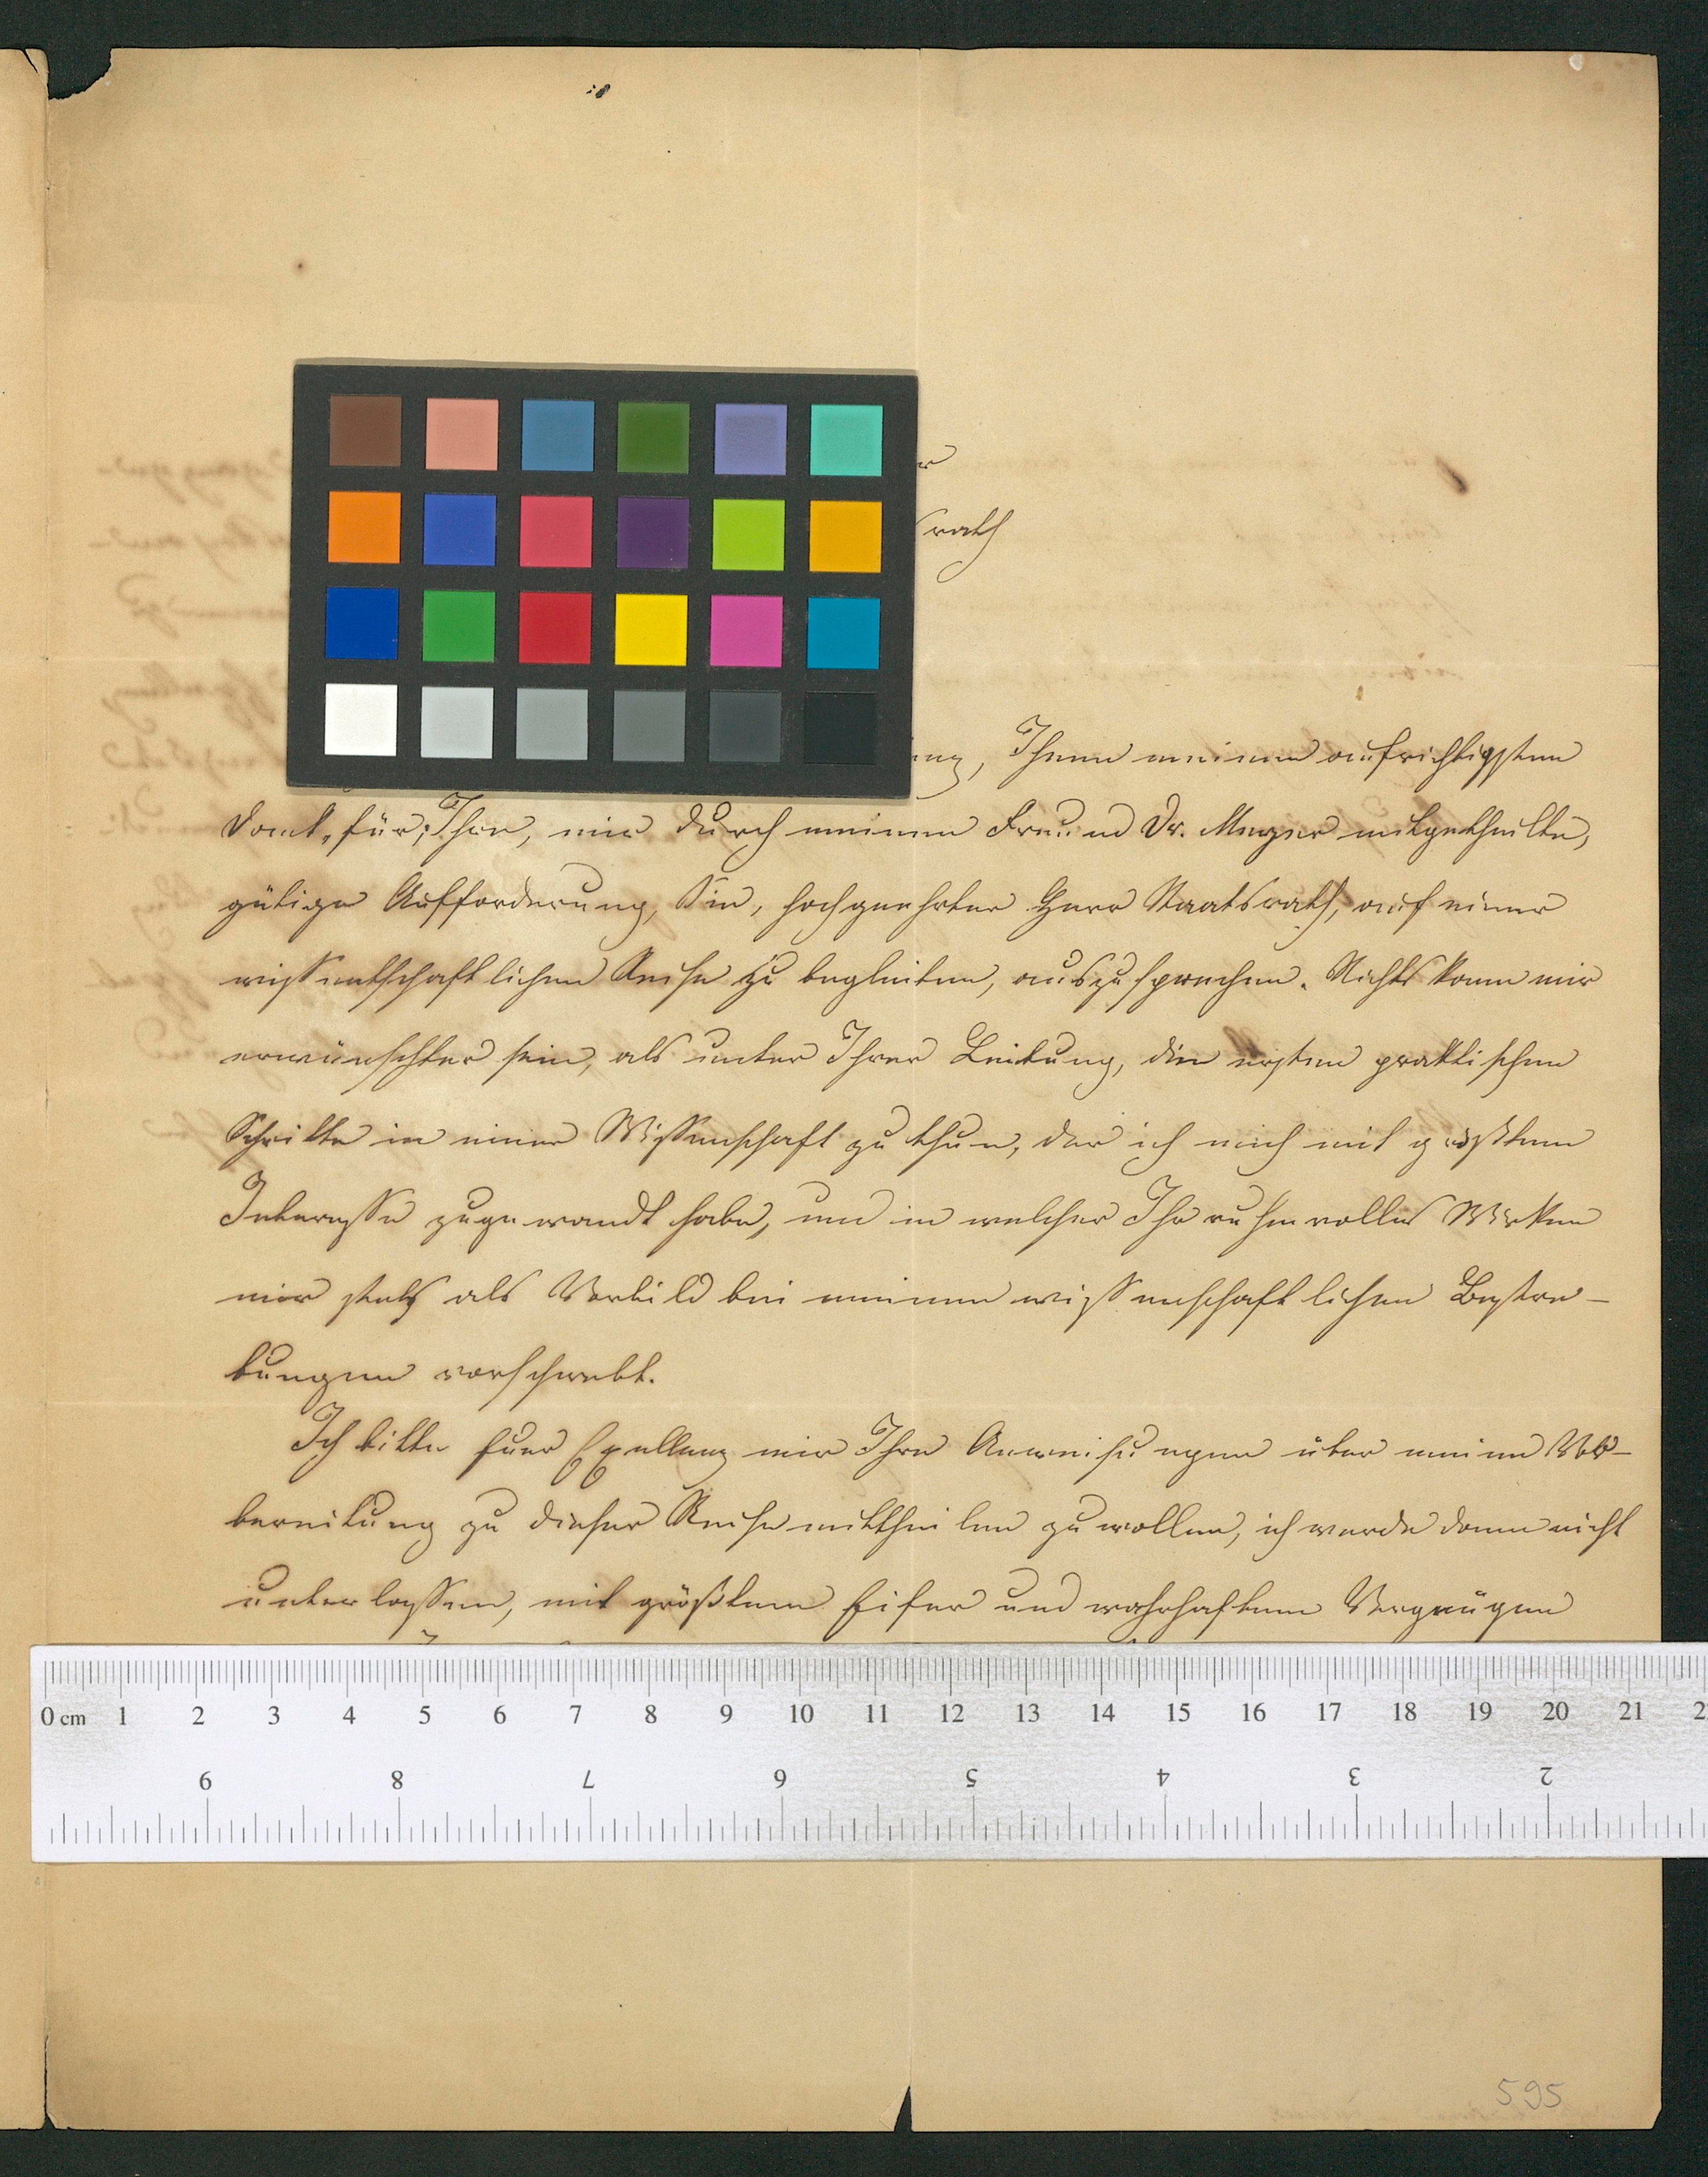 rath
Ihnen meinen aufrichtigsten
Dank, für, Ihre, mir durch meinen Freund Dr. Meyer mitgetheilte,
gütige Aufforderung, Sie, hochgeehrter Herr Staatsrath, auf einer
wissentschaftlichen Reise zu begleiten, auszusprechen. Nichts kann mir
erwünschter sein, als unter Ihrer Leitung, die ersten praktischen
Schritte in einer Wissenschaft zu thun, der ich mich mit größtem
Interesse zugewandt habe, und in welcher Ihr ruhmvolles Wirken
mir stets als Vorbild bei meinen wissenschaftlichen Bestre-
bungen vorschwebt.
Ich bitte Euer Excellenz mir Ihre Anweisungen über meine Vor-
bereitung zu dieser Reise mittheilen zu wollen, ich werde dann nicht
unterlassen, mit größtem Eifer und wahrhaftem Vergnügen
0 cm 1 2 3 4 5 6 7 8 9 10 11 12 13 14 15 16 17 18 19 20 21 2
9 8 7 6 5 4 3 2
595